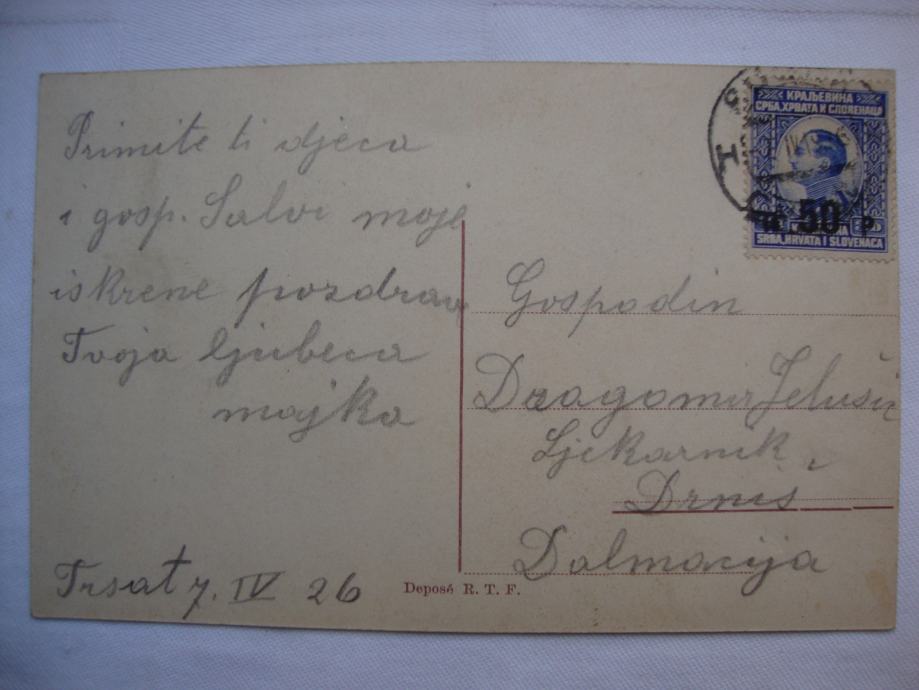 Primite ti djeca
i gosp. Salvi moje
iskrene pozdrave
Tvoja ljubeca
majka
Trsat 7. IV 26
Deposé R. T. F.
КРАЉЕВИНА
СРБА, ХРВАТА И СЛОВЕНАЦА
50 P
SRBA, HRVATA I SLOVENACA
Gospodin
Dragomir Jelušić
Ljekarnik
Drniš
Dalmacija